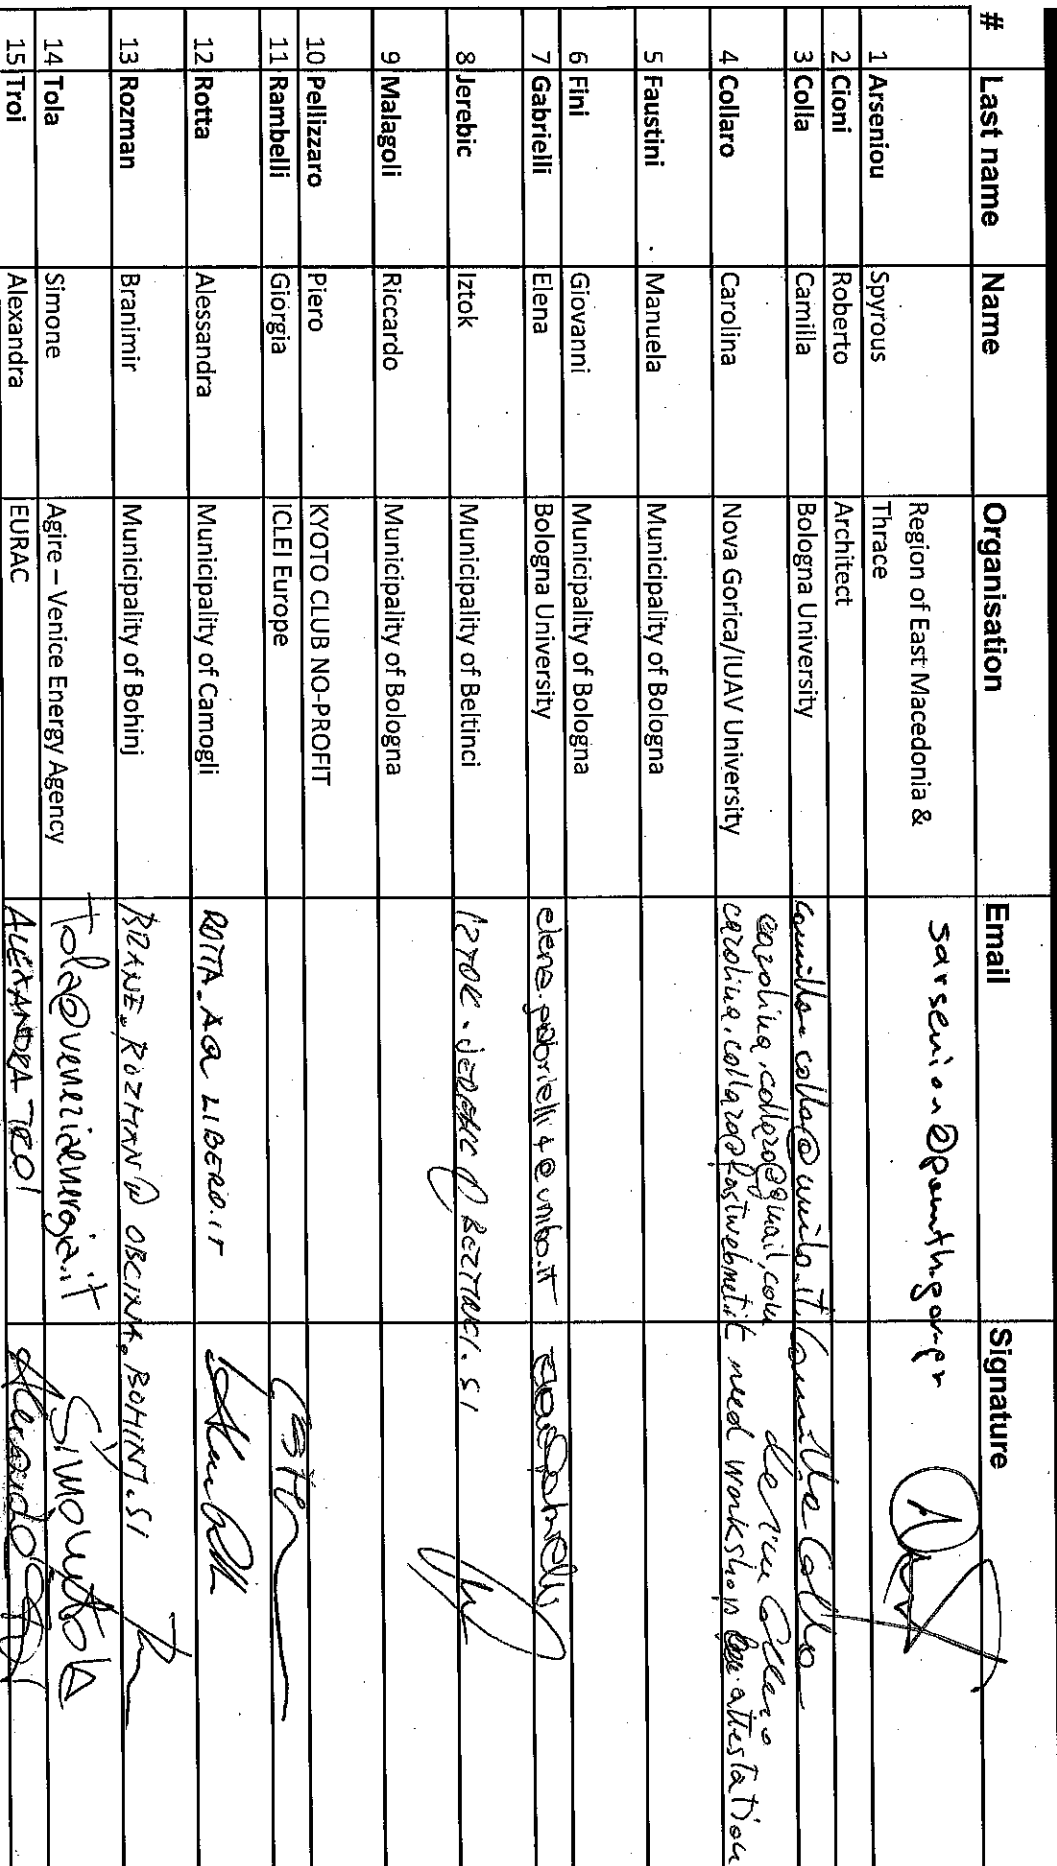 # Last name Name Organisation Email Signature
1 Arseniou Spyrous Region of East Macedonia &
Thrace
2 Cioni Roberto Architect
3 Colla Camilla Bologna University camilla.colla@unibo.it Camilla Colla
4 Collaro Carolina Nova Gorica/IUAV University carolina.collaro@gmail.com
carolina.collaro@fastwebnet.it need workshop attestation
5 Faustini Manuela Municipality of Bologna
6 Fini Giovanni Municipality of Bologna
7 Gabrielli Elena Bologna University elena.gabrielli4@unibo.it
8 Jerebic Iztok Municipality of Beltinci
9 Malagoli Riccardo Municipality of Bologna
10 Pellizzaro Piero KYOTO CLUB NO-PROFIT
11 Rambelli Giorgia ICLEI Europe
12 Rotta Alessandra Municipality of Camogli ROTTA.A@LIBERO.IT
13 Rozman Branimir Municipality of Bohinj BRANE.ROZMAN@OBCINA.BOHINJ.SI
14 Tola Simone Agire – Venice Energy Agency Tola@veneziaenergia.it Simone Tola
15 Troi Alexandra EURAC ALEXANDRA TROI